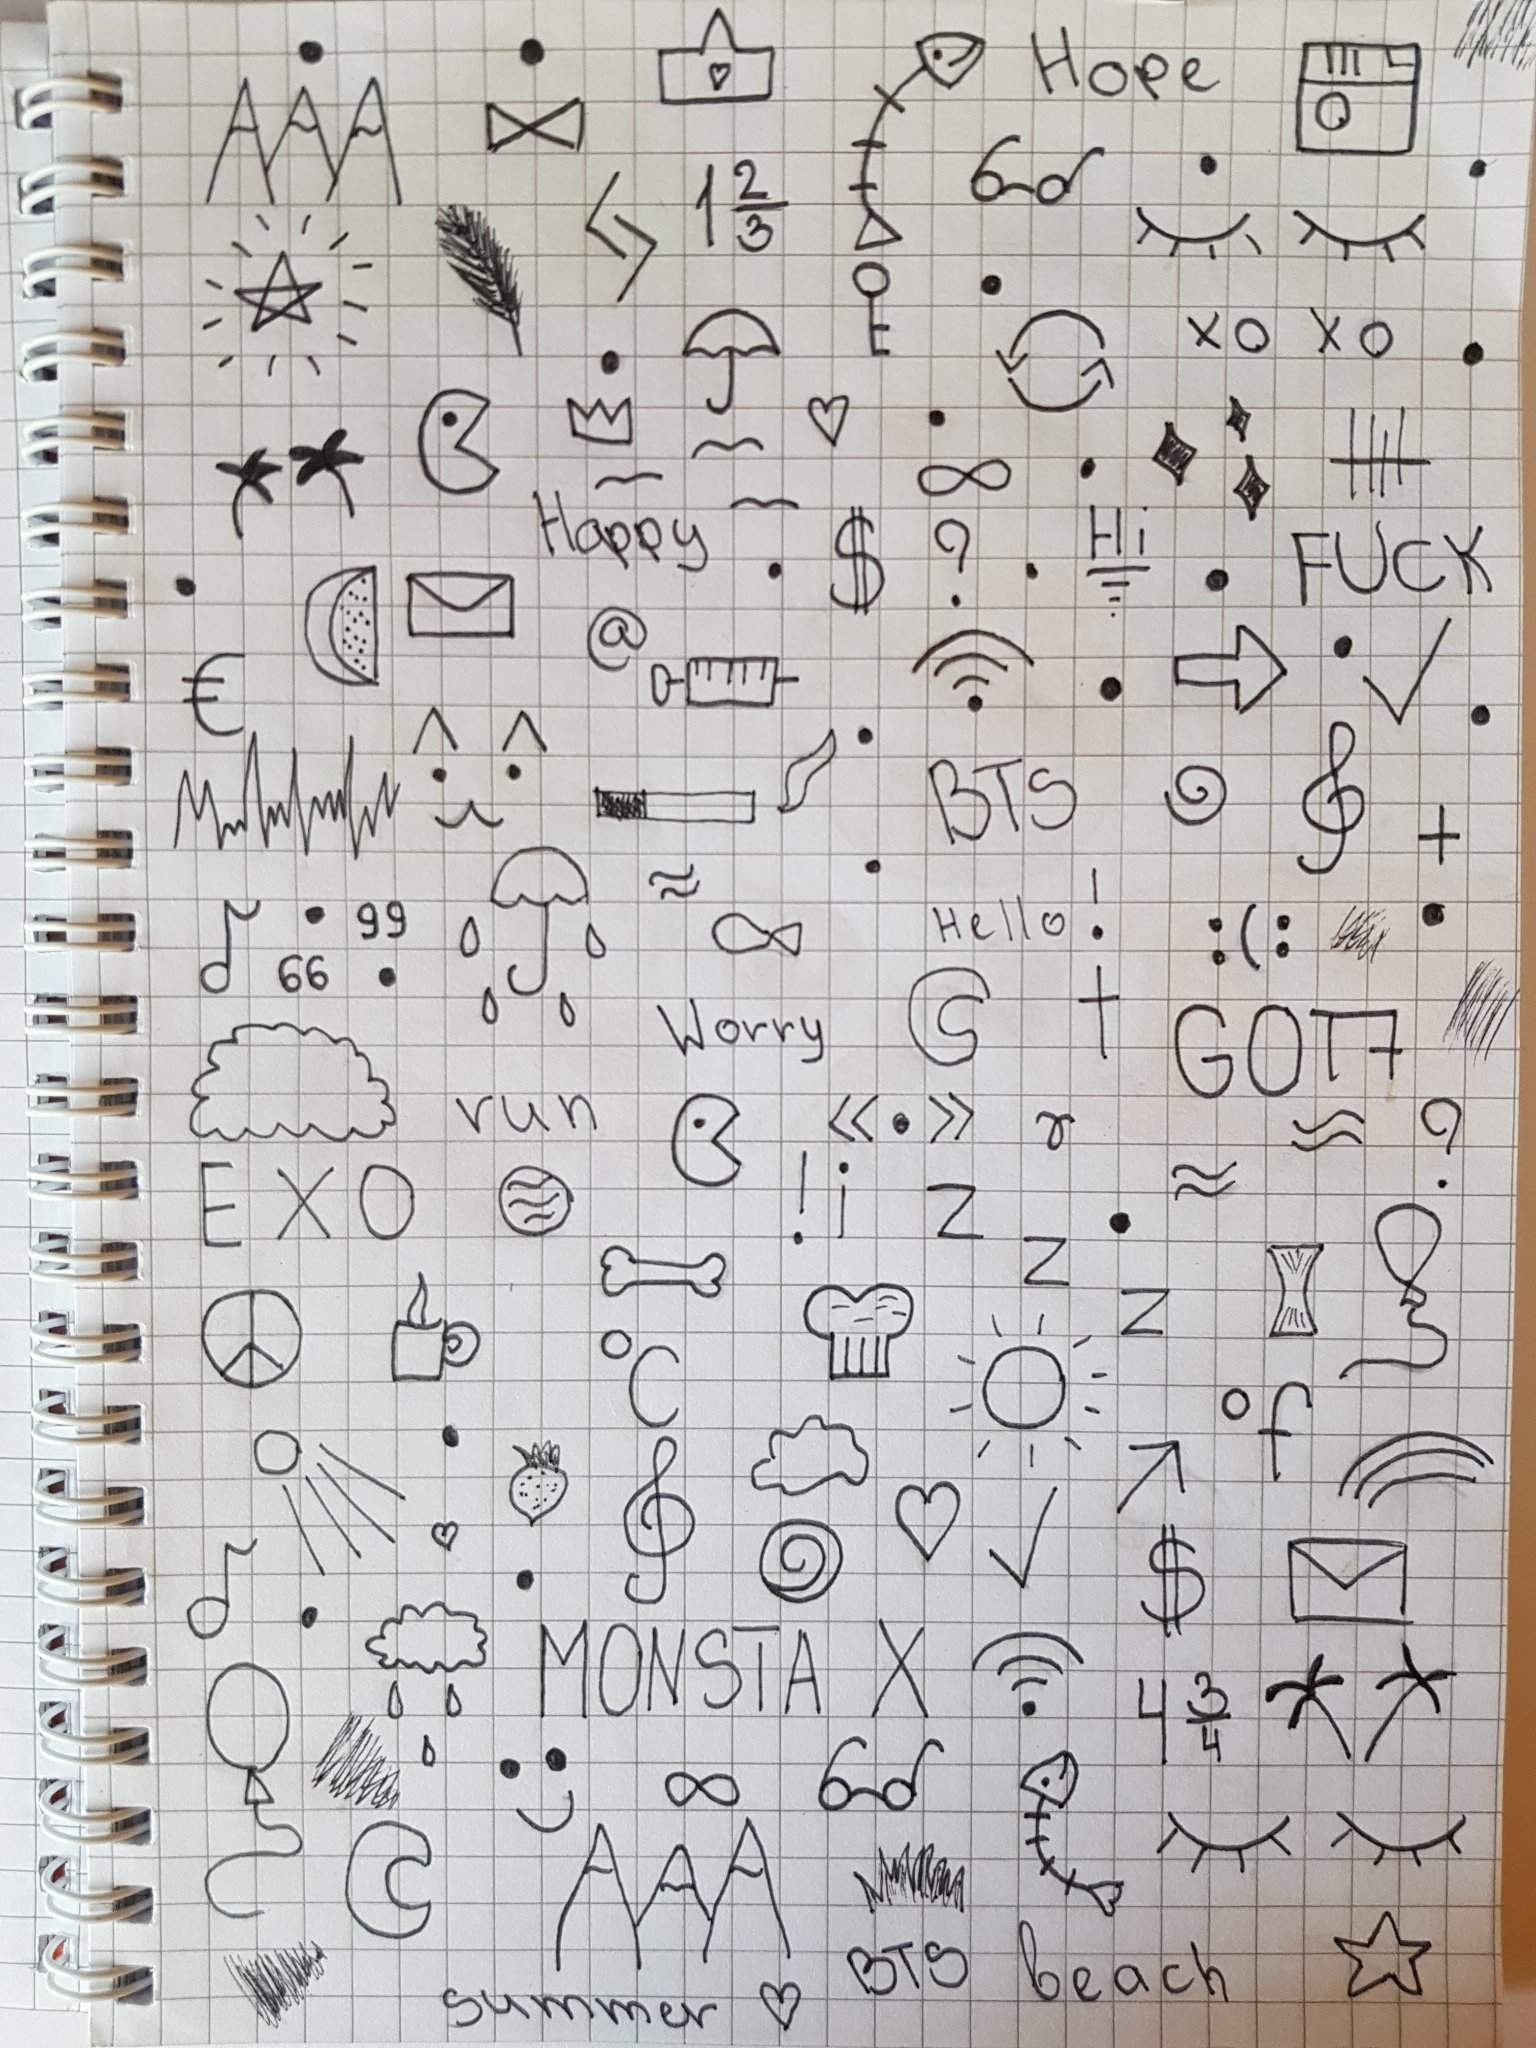 Hope
1 2/3
XO XO
Happy
$ ? Hi FUCK
@
€
BTS
+
99
66
Hello!
:(:
Worry
GOT7
run
« • » r
?
EXO
! i z
z
z
°C
°f
$
MONSTA X
4 3/4
BTS beach
summer